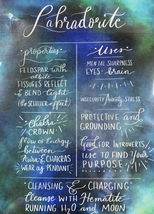 Labradorite
properties
FELDSPAR with
albite
FISSURES REFLECT
& BEND light
(the schiller effect)
Chakra
CROWN
flow of Energy
between
Aura & CHAKRAS
WEAR as PENDANT
Uses
MENTAL SHARPNESS
EYES brain
INSECURITY anxiety STRESS
PROTECTIVE and
GROUNDING
Good for INTROVERTS
USE to FIND YOUR
PURPOSE
CLEANSING & CHARGING
Cleanse with Hematite
RUNNING H2O and MOON